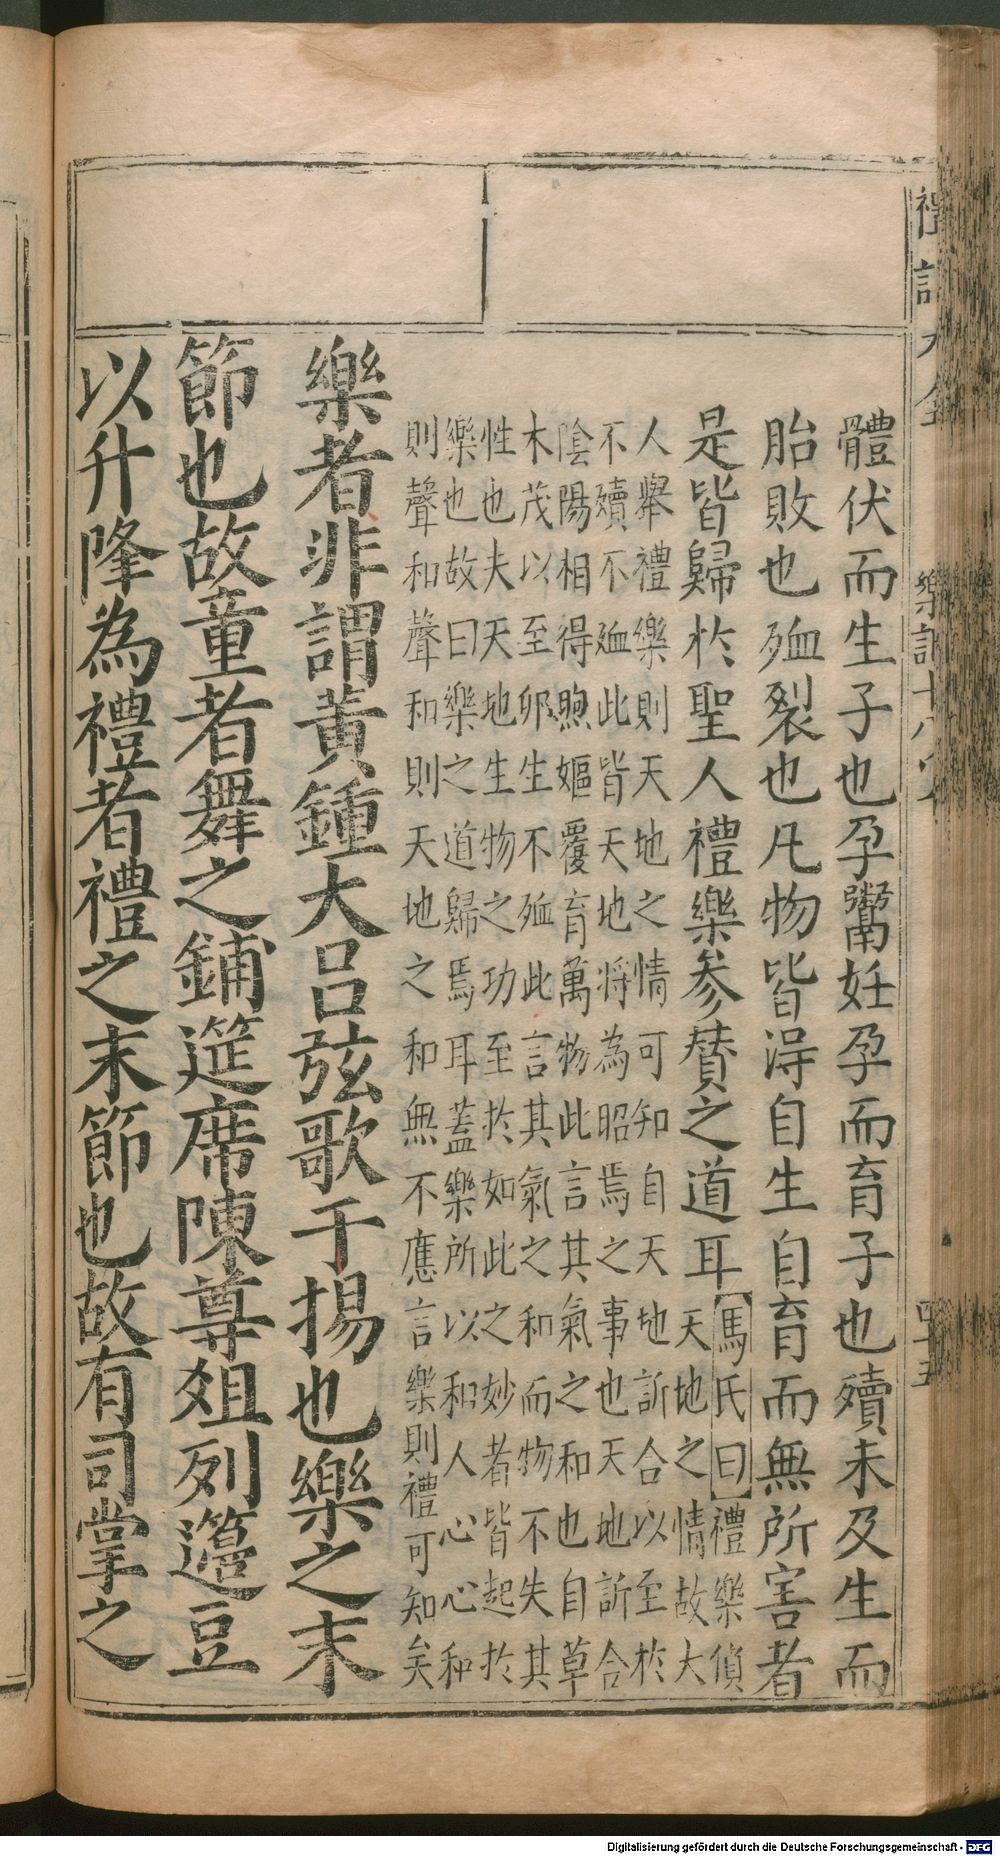 禮記大全 樂記十八 四十五
體伏而生子也孕鬻妊孕而育子也殰未及生而
胎敗也殈裂也凡物皆淂自生自育而無所害者
是皆歸於聖人禮樂參賛之道耳
【馬氏曰】禮樂偵
天地之情故大
人舉禮樂則天地之情可知自天地訢合以至於
不殰不殈此皆天地將為昭焉之事也天地訢合
陰陽相得煦嫗覆育萬物此言其氣之和也自草
木茂以至卵生不殈此言其氣之和而物不失其
性也夫天地生物之功至於如此之妙者皆起於
樂也故曰樂之道歸焉耳蓋樂所以和人心心和
則聲和聲和則天地之和無不應言樂則禮可知矣
樂者非謂黃鍾大呂弦歌干揚也樂之末
節也故童者舞之鋪筵席陳尊俎列籩豆
以升降為禮者禮之末節也故有司掌之
Digitalisierung gefördert durch die Deutsche Forschungsgemeinschaft - DFG